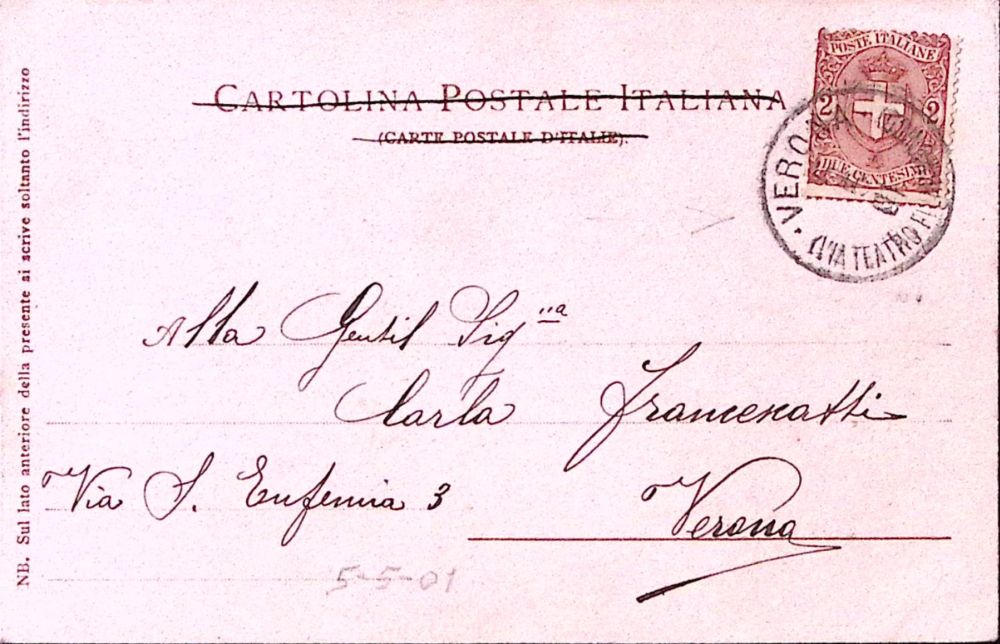 POSTE ITALIANE
2 2
DUE CENTESIMI
CARTOLINA POSTALE ITALIANA
(CARTE POSTALE D'ITALIE).
VERONA
(VIA TEATRO
Alla Gentil Sig.na
Carla Francescatti
Via S. Eufemia 3
Verona
5-5-01
NB. Sul lato anteriore della presente si scrive soltanto l'indirizzo